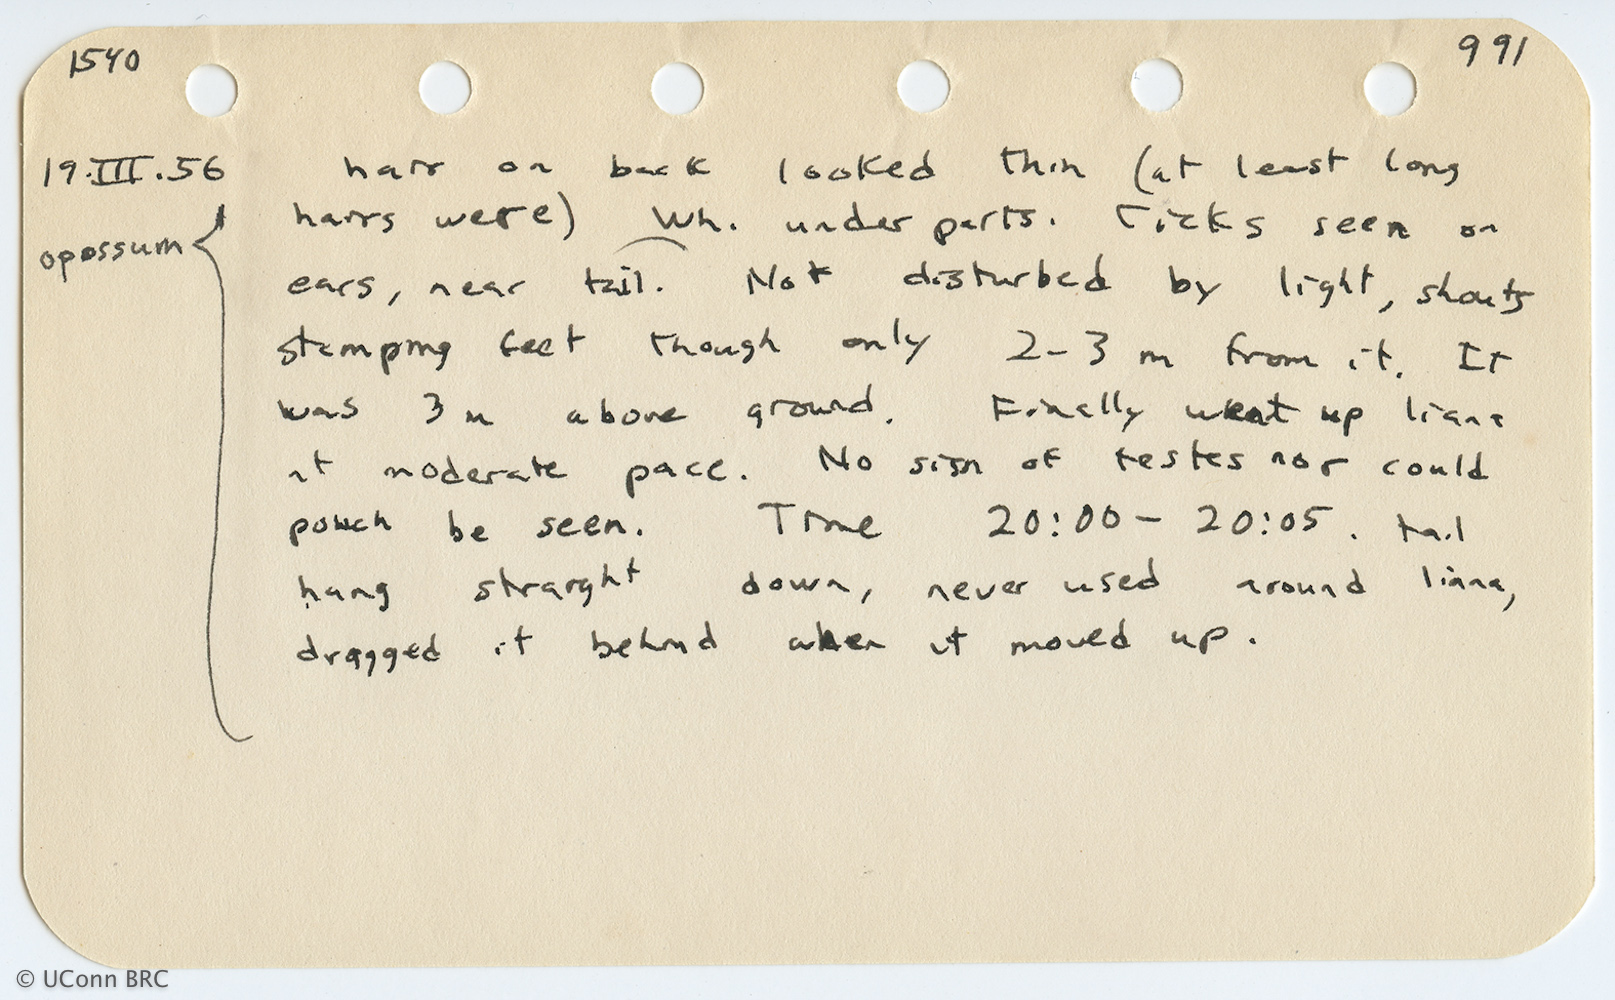 1540
991
19.III.56
hair on back looked thin (at least long
hairs were) Wh. under parts. Ticks seen on
opossum
ears, near tail. Not disturbed by light, shouts
stamping feet though only 2-3 m from it. It
was 3 m above ground. Finally went up liana
at moderate pace. No sign of testes nor could
pouch be seen. Time 20:00 - 20:05. tail
hang straight down, never used around liana,
dragged it behind when it moved up.
© UConn BRC